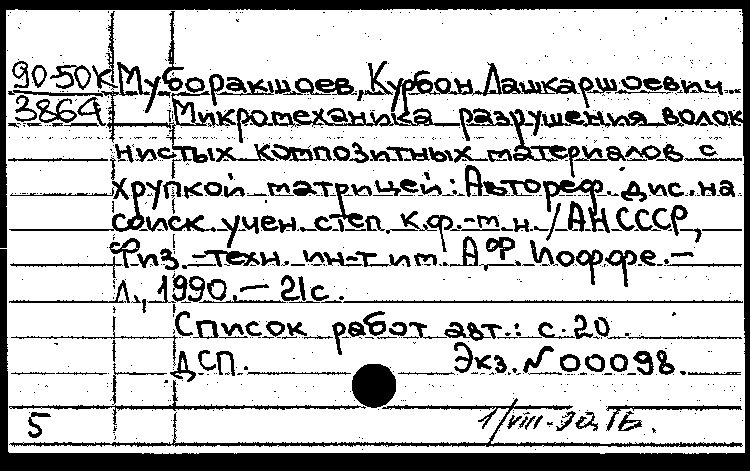 90-50К Муборакшоев, Курбон Лашкаршоевич.
3864 Микромеханика разрушения волок
нистых композитных материалов с
хрупкой матрицей: Автореф. дис. на
соиск. учен. степ. к.ф.-м.н. / АН СССР,
Физ.-техн. ин-т им. А.Ф. Иоффе.—
Л., 1990.— 21с.
Список работ авт.: с.20.
ДСП. Экз.№00098.
5 1/VIII-90.